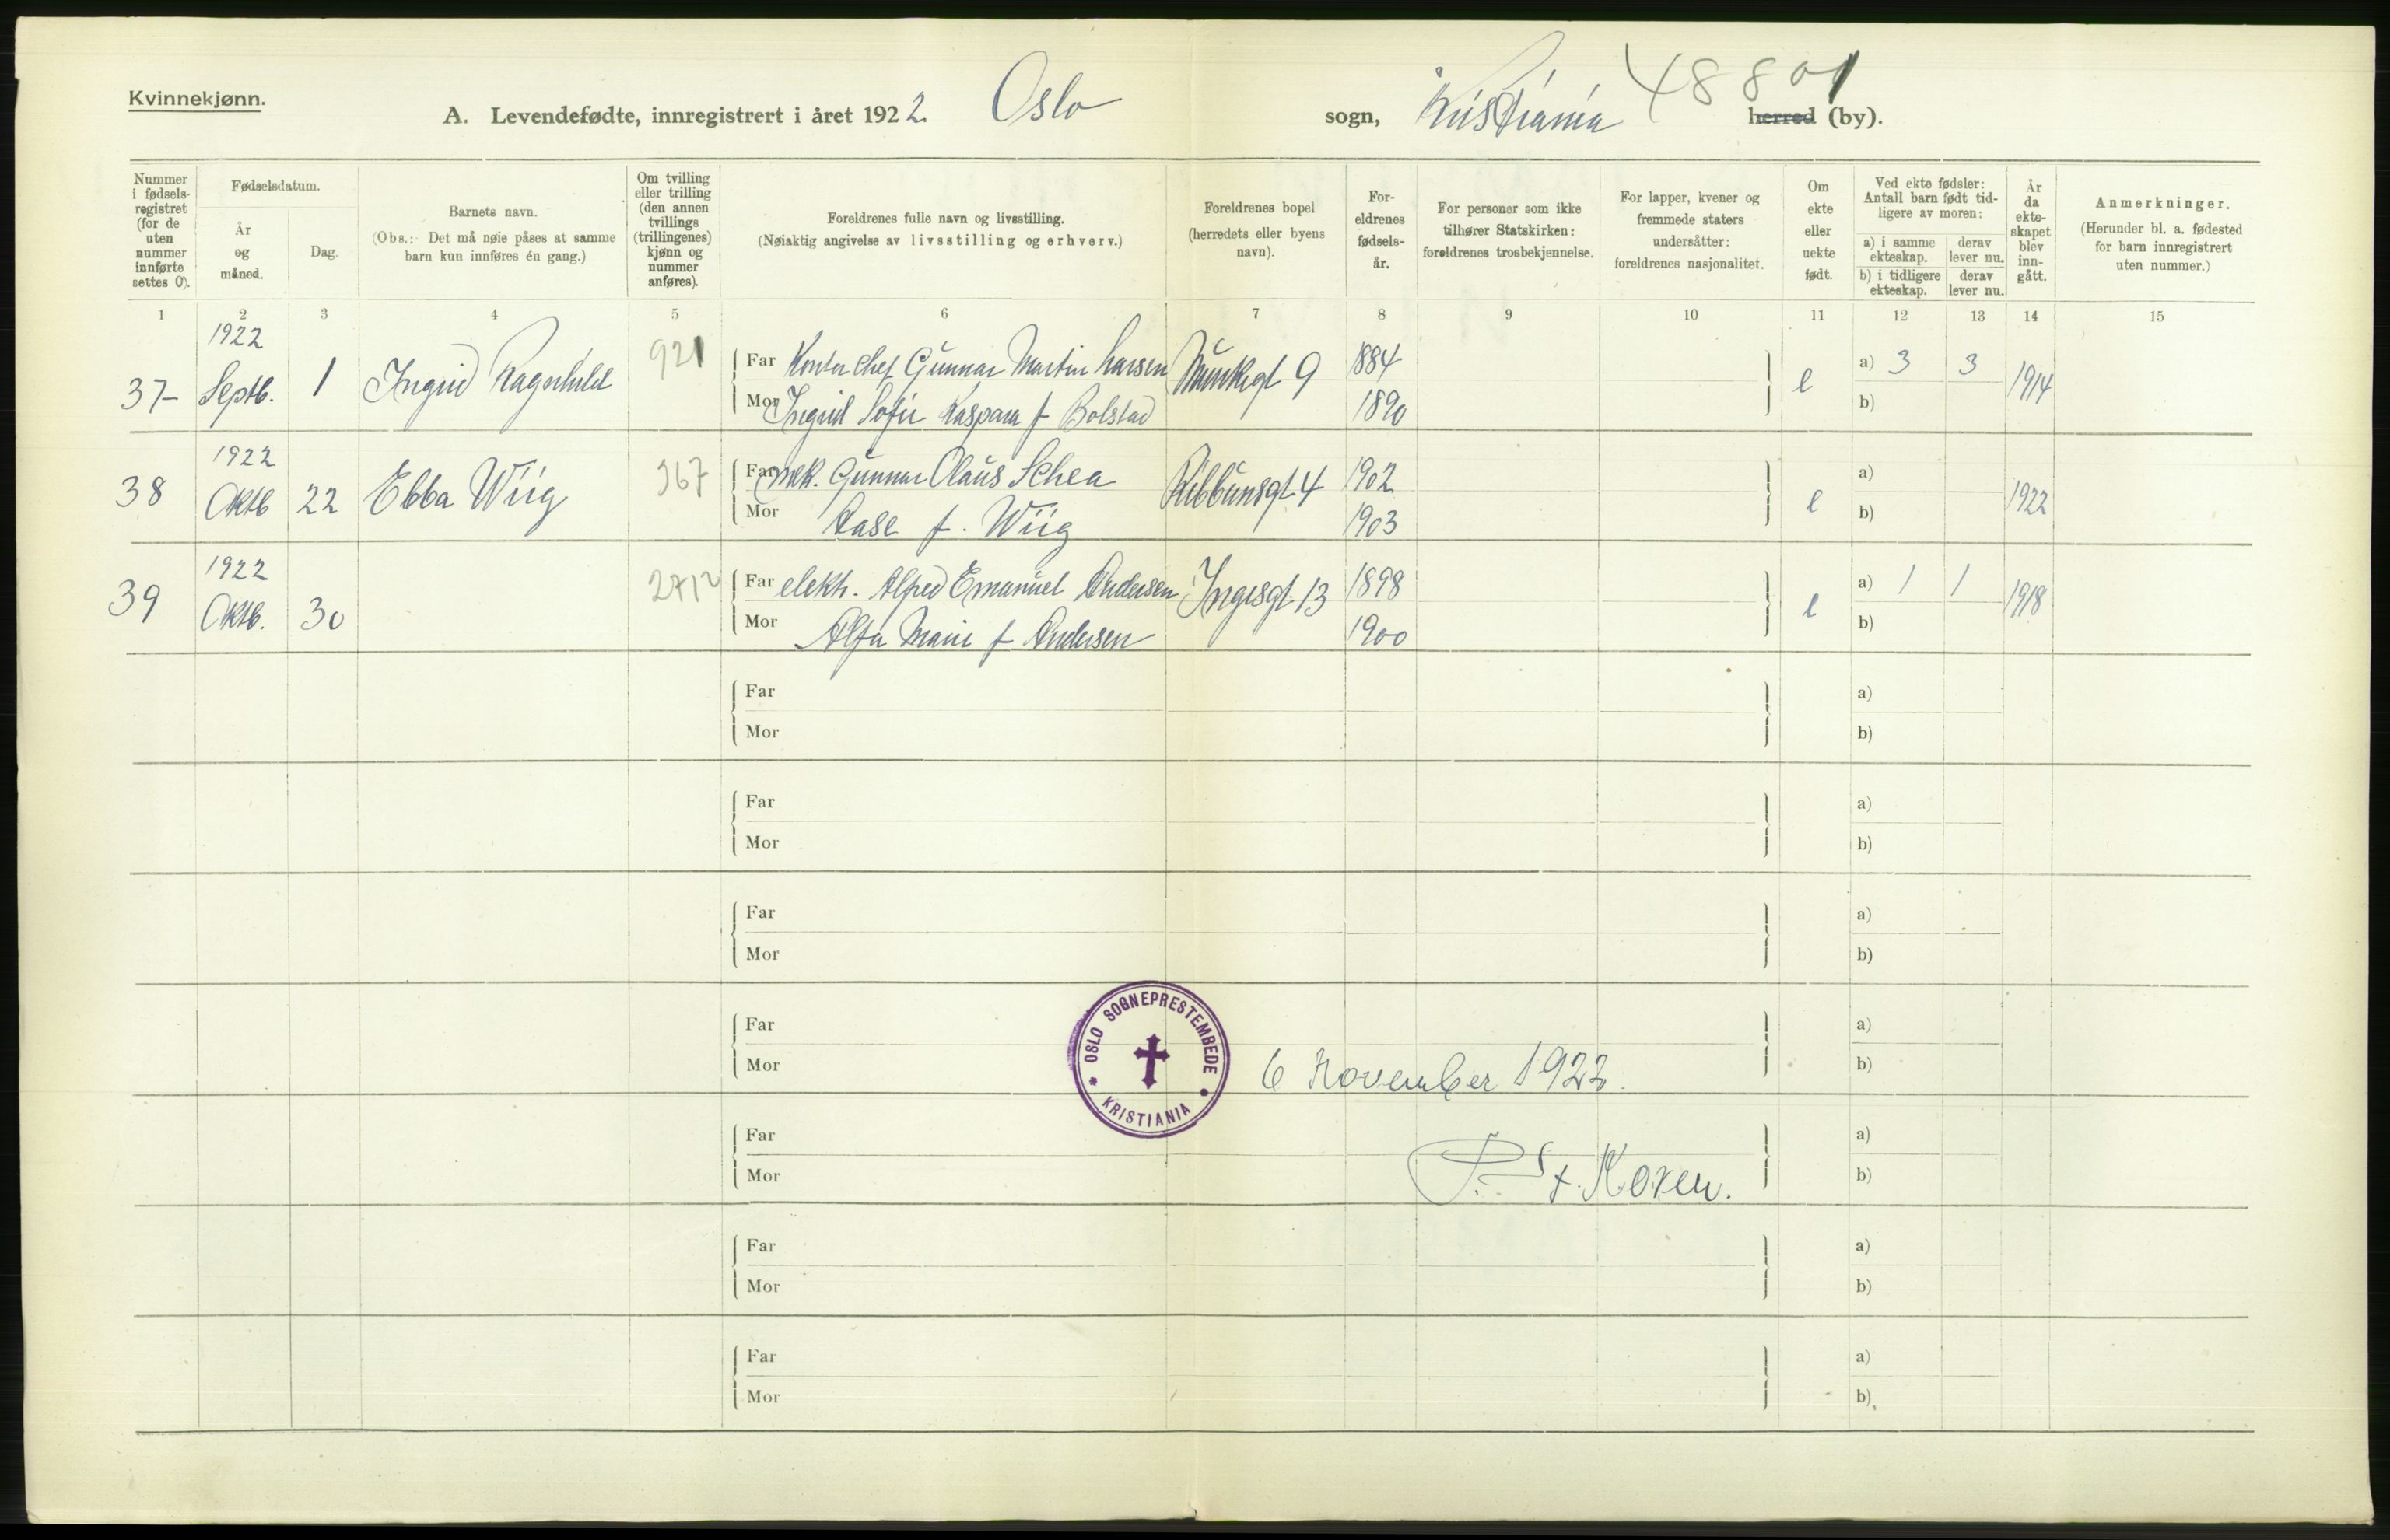 Kvinnekjønn.
A. Levendefødte, innregistrert i året 1922. Oslo sogn, Kristiania herred (by).
48801
Nummer i fødsels-registret (for de uten nummer innførte settes 0).
Fødselsdatum.
År og måned.
Dag.
Barnets navn.
(Obs.: Det må nøie påses at samme barn kun innføres én gang.)
Om tvilling eller trilling (den annen tvillings (trillingenes) kjønn og nummer anføres).
Foreldrenes fulle navn og livsstilling.
(Nøiaktig angivelse av livsstilling og erhverv.)
Foreldrenes bopel (herredets eller byens navn).
For-eldrenes fødsels-år.
For personer som ikke tilhører Statskirken: foreldrenes trosbekjennelse.
For lapper, kvener og fremmede staters undersåtter: foreldrenes nasjonalitet.
Om ekte eller uekte født.
Ved ekte fødsler: Antall barn født tid-ligere av moren:
a) i samme ekteskap.
derav lever nu.
b) i tidligere ekteskap.
derav lever nu.
År da ekte-skapet blev inn-gått.
Anmerkninger.
(Herunder bl. a. fødested for barn innregistrert uten nummer.)
1 2 3 4 5 6 7 8 9 10 11 12 13 14 15
37 1922 Septb. 1 Ingrid Ragnhild 921 Far Kontorchef Gunnar Martin Larsen Munkegt 9 1884 e a) 3 3 1914
Mor Ingrid Sofie Kaspara f Bolstad 1890 b)
38 1922 Oktb 22 Ebba Wiig 367 Far mek. Gunnar Olaus Schea Ribbungsgt. 4 1902 e a) 1922
Mor Aase f. Wiig 1903 b)
39 1922 Oktb. 30 2712 Far elektr. Alfred Emanuel Andersen Ingesgt. 13 1898 e a) 1 1 1918
Mor Alfa Marie f Andersen 1900 b)
Far a)
Mor b)
Far a)
Mor b)
Far a)
Mor b)
Far a)
Mor b)
OSLO SOGNEPRESTEMBEDE
KRISTIANIA
6 November 1922.
Far a)
Mor b)
Koren.
Far a)
Mor b)
Far a)
Mor b)